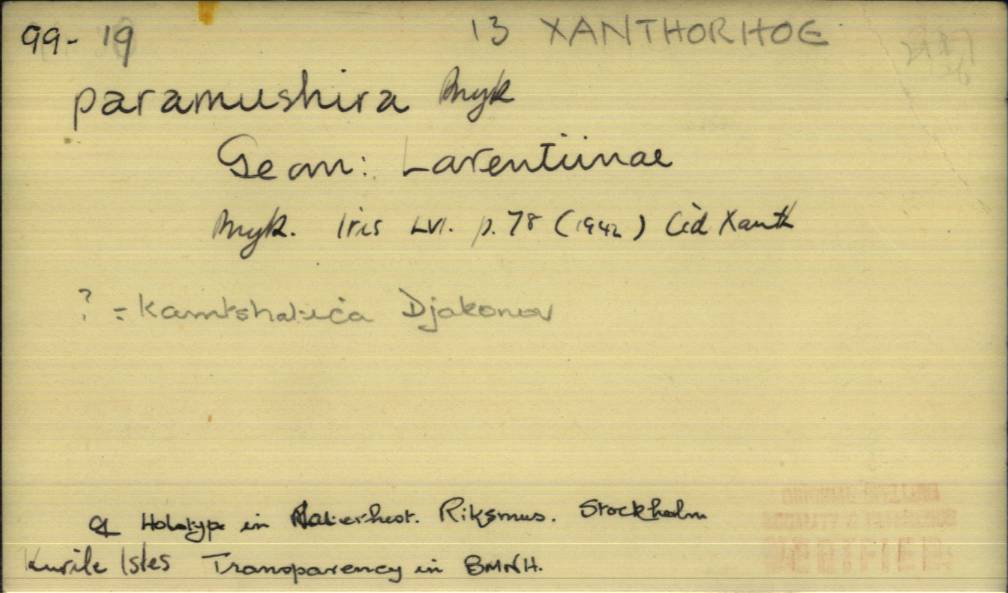 99-19 13 XANTHORHOE
paramushira Bryk
Geom: Larentiinae
Bryk. Iris LVI. p. 78 (1942) Cid Xanth
? = Kamtshatica Djakonov
Holotype in Naturhist. Riksmus. Stockholm
Kurile Isles Transparency in BMNH.